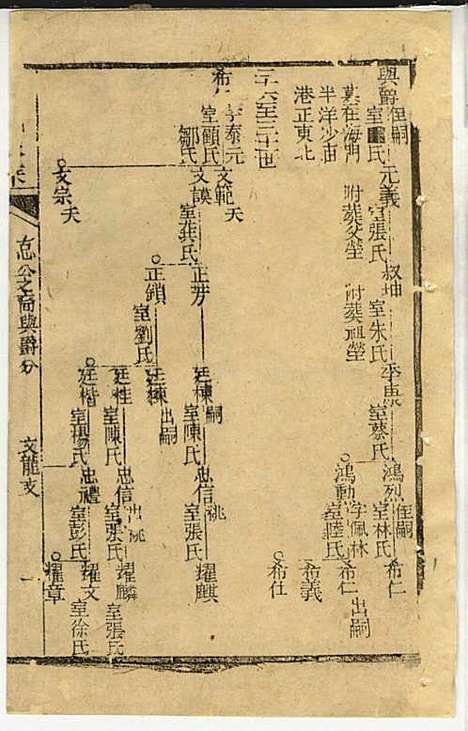 與爵
侄嗣
室 氏
元義
室張氏
叔坤
室朱氏
季惠
室蔡氏
鴻烈
侄嗣
室林氏
希仁
墓在海門
附葬父塋
附葬祖塋
字佩林
半洋沙庙
鴻勳
室陸氏
希仁
出嗣
港正東北
希義
希仕
二十六至三十世
希仁
字泰元
室顧氏
鄒氏
文範
夭
文謨
室龚氏
正芳
廷棟
嗣
室陳氏
忠信
祧
室張氏
耀麒
正鎖
室劉氏
廷棟
出嗣
廷桂
室陳氏
忠信
出祧
室張氏
耀麟
室張氏
廷楷
室楊氏
忠禮
室彭氏
耀文
室徐氏
文宗
夭
耀章
公之裔與爵分
文龍支
一